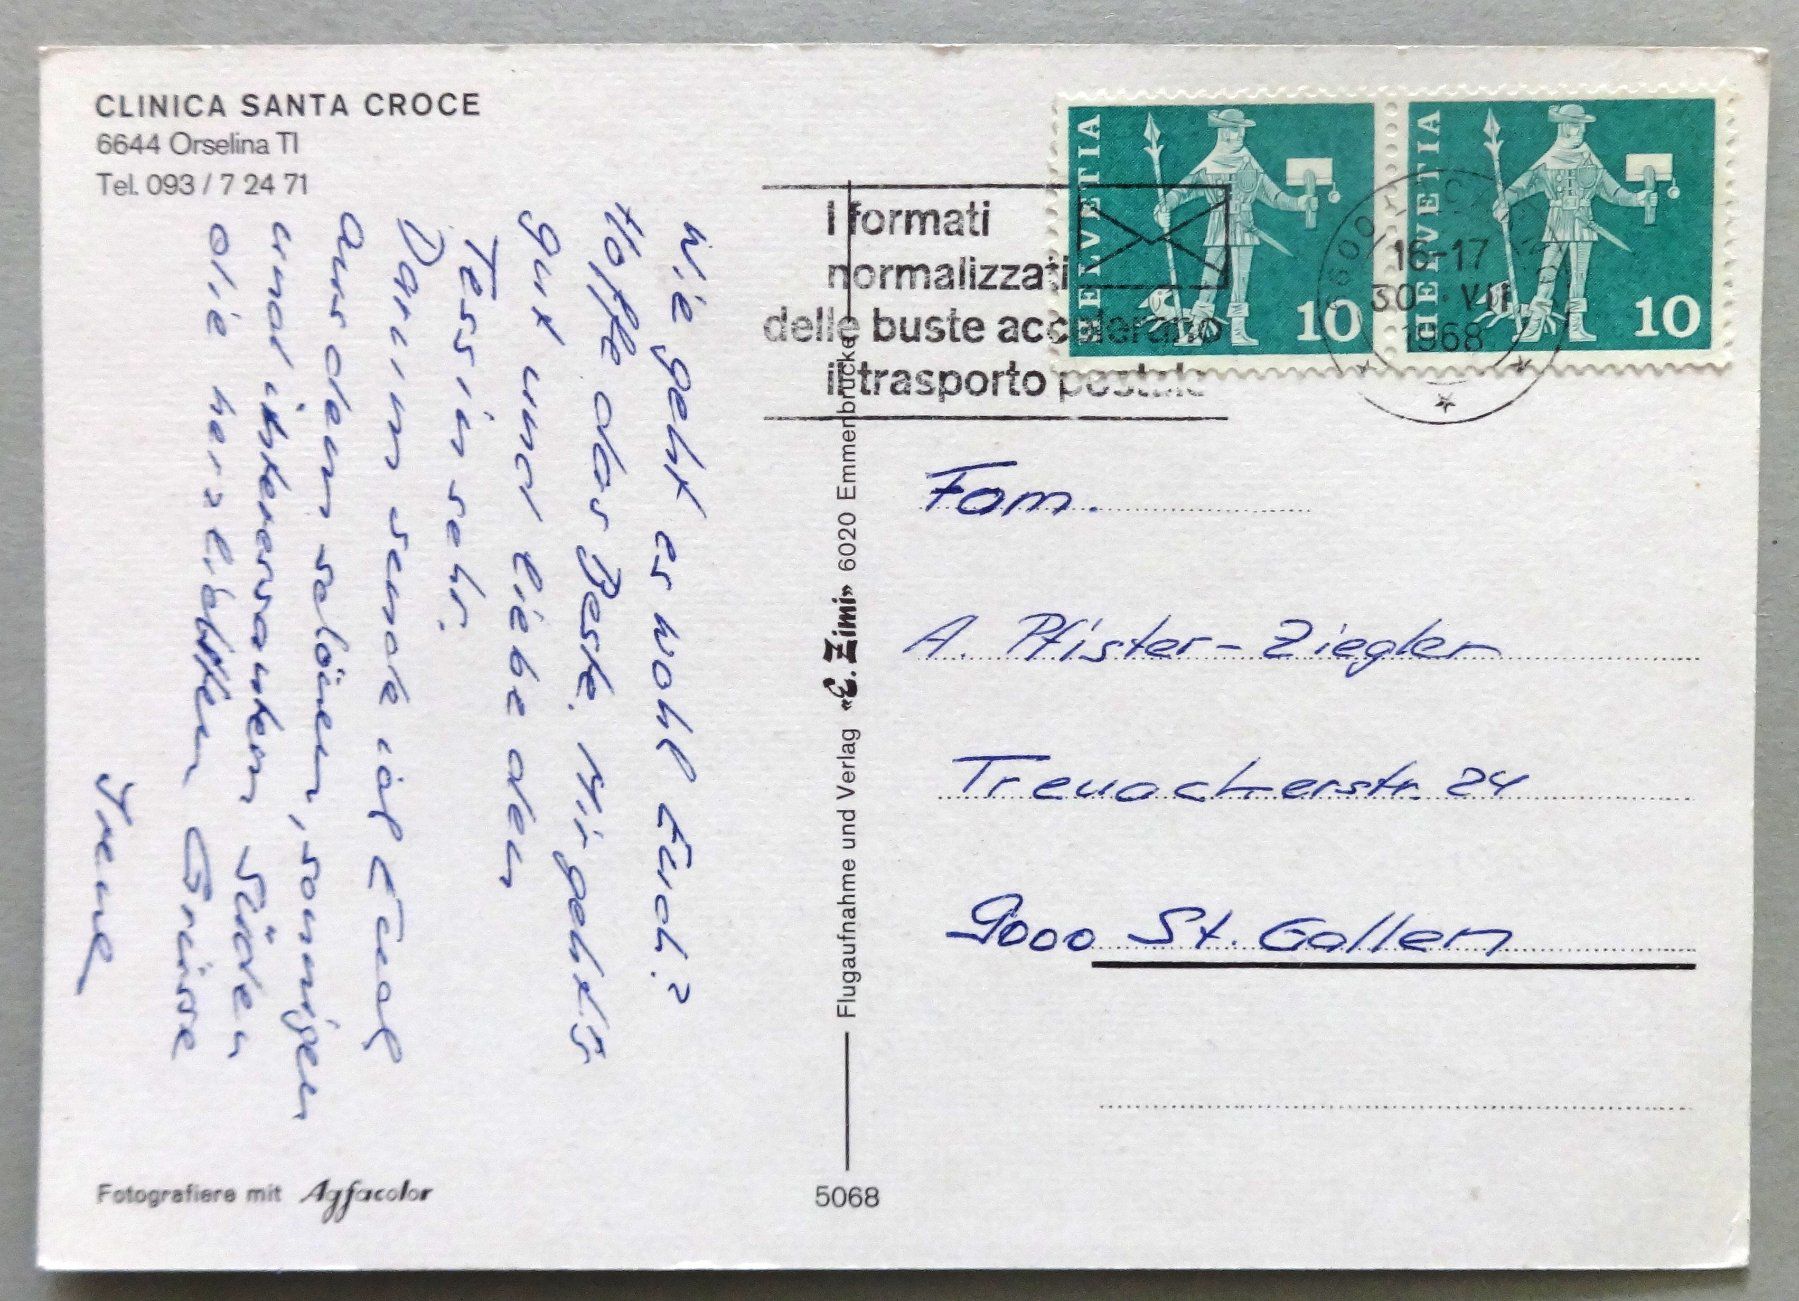 CLINICA SANTA CROCE
6644 Orselina TI
Tel. 093 / 7 24 71
Wie geht es wohl Euch?
Hoffe das Beste. Mir gehts
gut und liebe den
Tessin sehr.
Darum sende ich Euch
aus dem schönen, sonnigen
und interessanten Süden
die herzlichsten Grüsse
Irene
Fotografiere mit Agfacolor
Flugaufnahme und Verlag «E. Zimi» 6020 Emmenbrücke
5068
I formati
normalizzati
delle buste accelerano
il trasporto postale
HELVETIA
10
HELVETIA
10
6600
16-17
30. VII
1968
Fam.
A. Pfister-Ziegler
Treuackerstr. 24
9000 St. Gallen